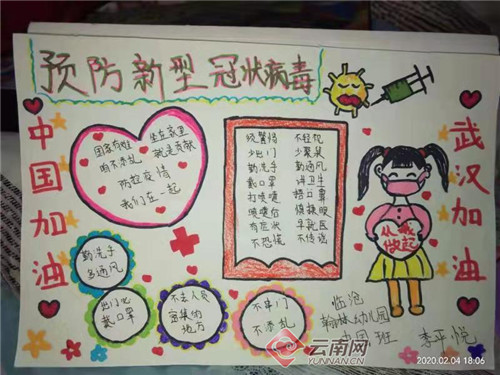 预防新型冠状病毒
中国加油
武汉加油
国家有难 坐在家里
咱不添乱 就是贡献
防控疫情
我们在一起
织警惕 不轻忱
少出门 少聚集
勤洗手 勤通风
戴口罩 讲卫生
打喷嚏 捂口罩
喷嚏后 慎揉眼
有症状 早就医
不恐慌 不传谣
从我
做起
勤洗手
多通风
出门必
戴口罩
不去人员
密集的
地方
不串门
不添乱
临沧
翰林幼儿园
班
李平悦
云南网
YUNNAN.CN
2020.02.04 18:06